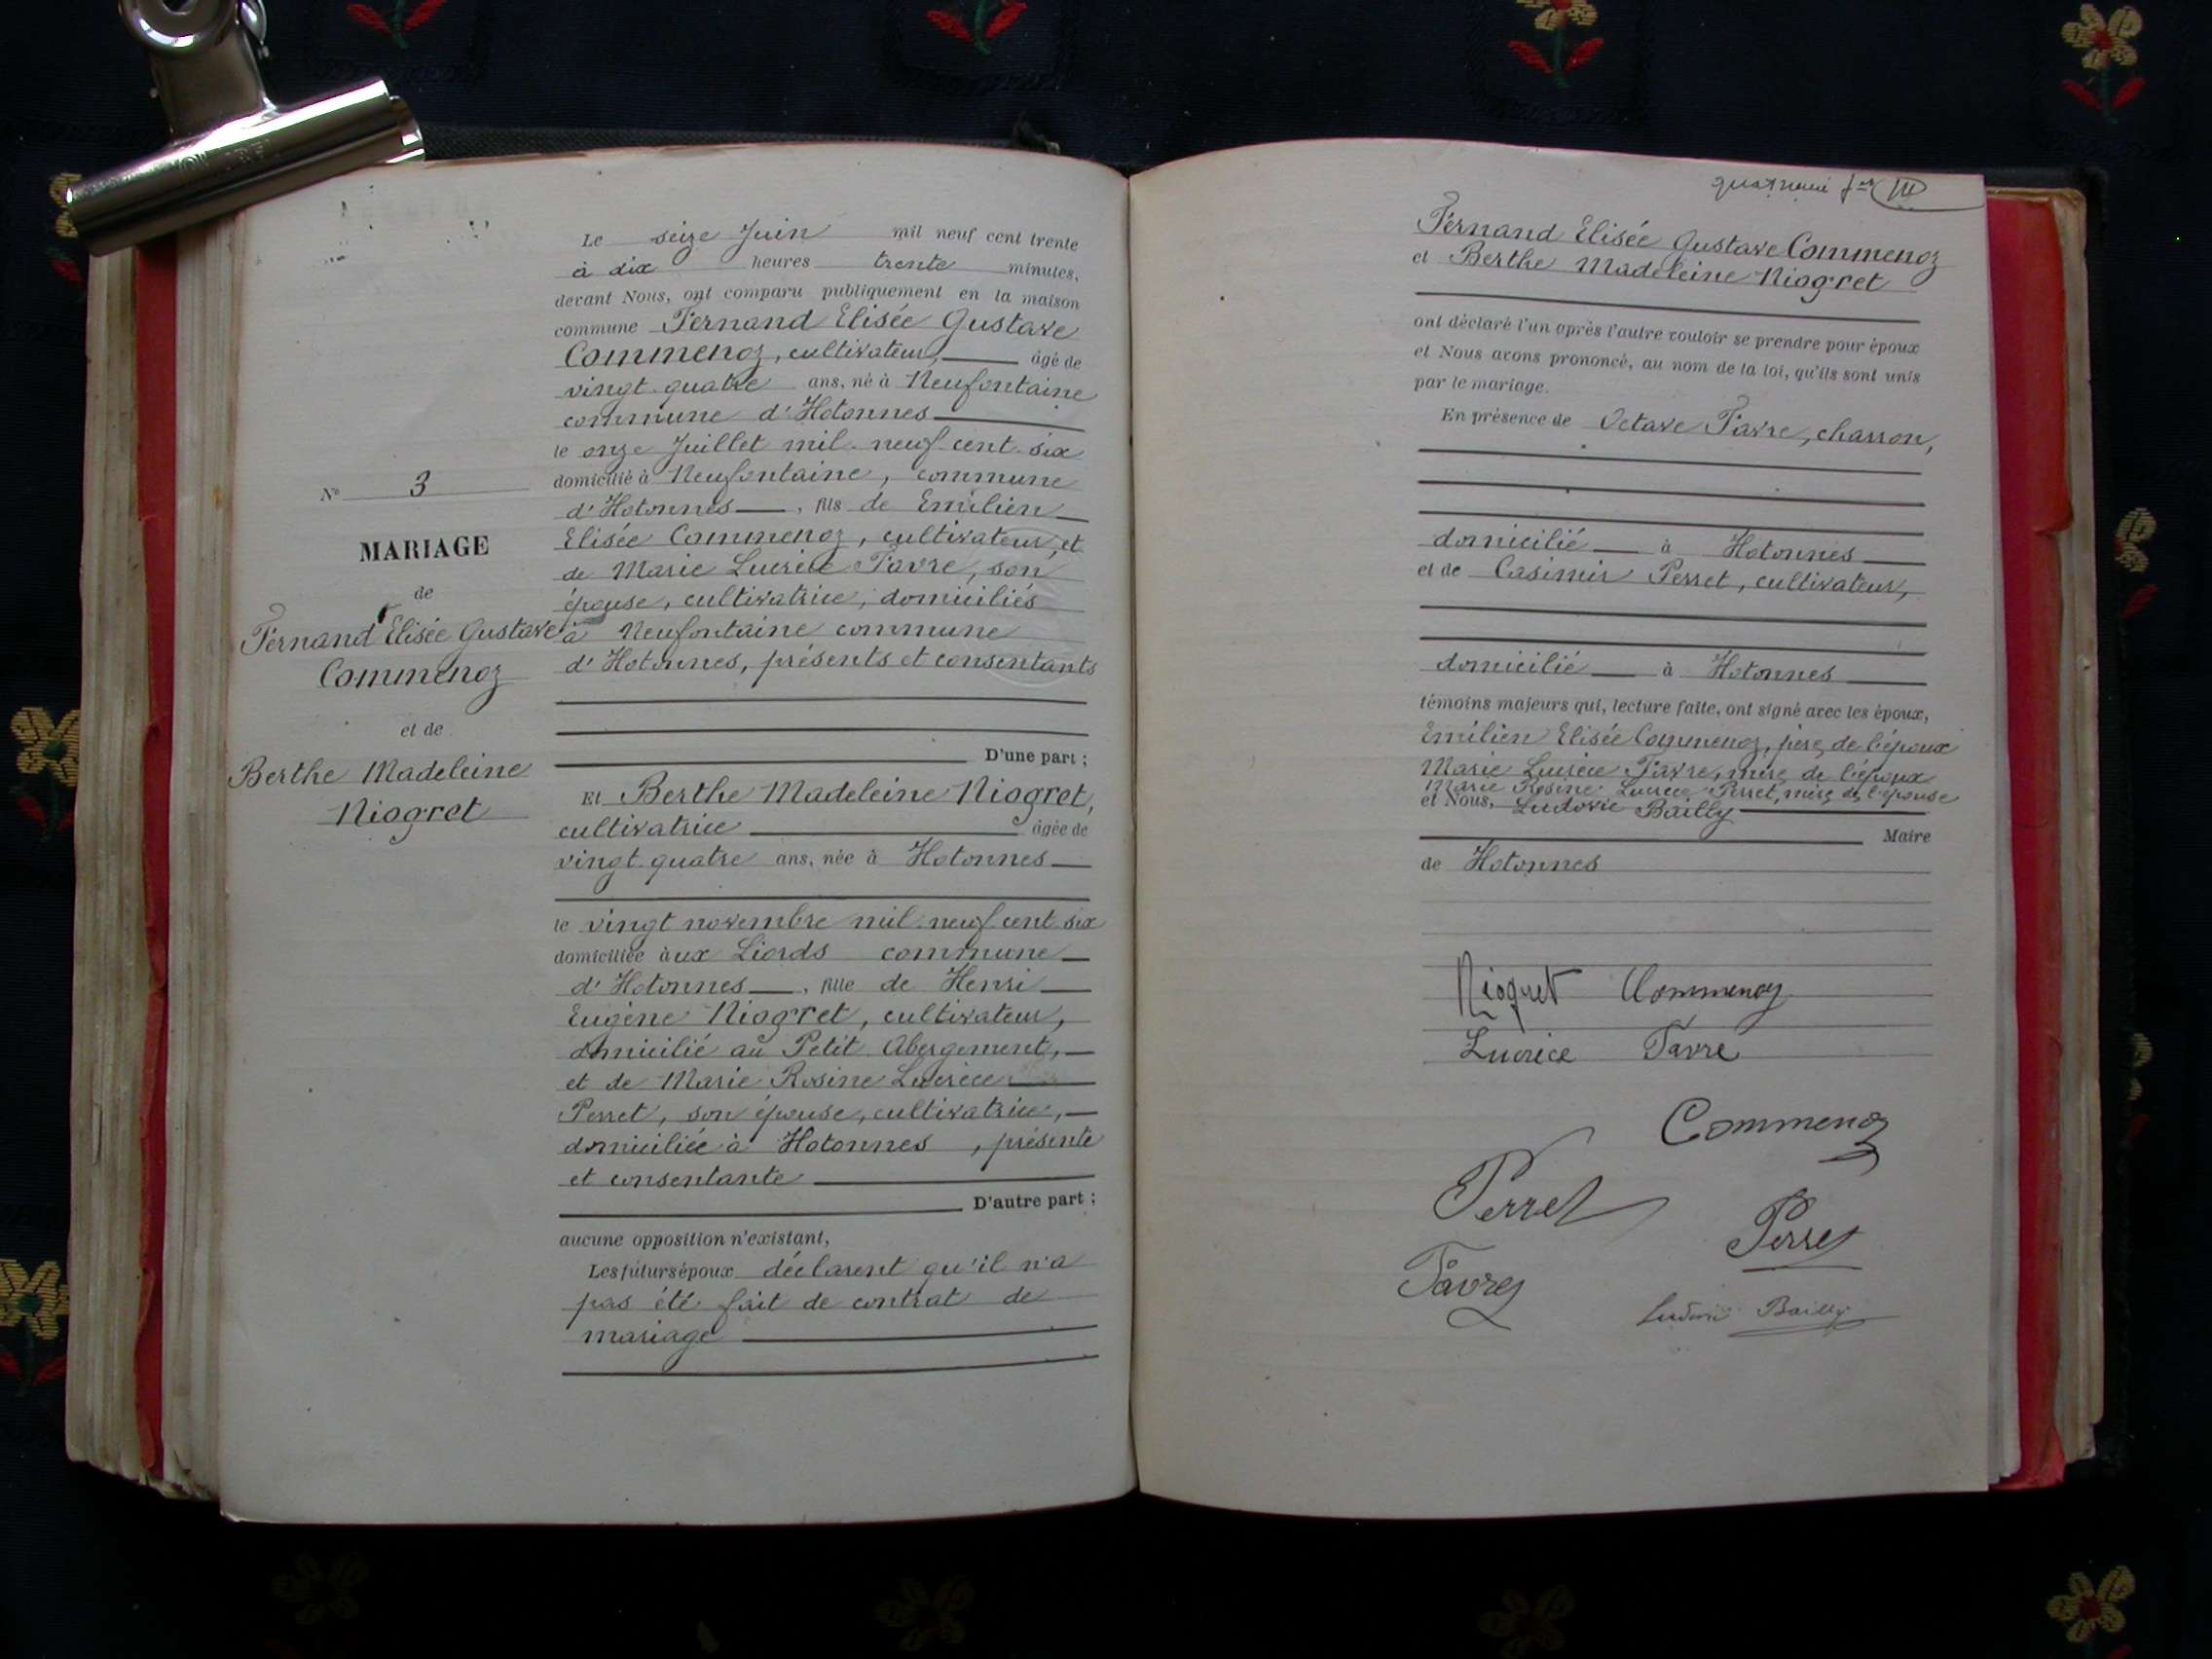 N° 3
MARIAGE
de
Fernand Elisée Gustave
Commenoz
et de
Berthe Madeleine
Niogret
Le seize Juin mil neuf cent trente
à dix heures trente minutes,
devant Nous, ont comparu publiquement en la maison
commune Fernand Elisée Gustave
Commenoz, cultivateur, âgé de
vingt quatre ans, né à Neufontaine
commune d'Hotonnes
le onze Juillet mil neuf cent six
domicilié à Neufontaine, commune
d'Hotonnes, fils de Emilien
Elisée Commenoz, cultivateur, et
de Marie Lucrèce Favre, son
épouse, cultivatrice, domiciliés
à Neufontaine commune
d'Hotonnes, présents et consentants
D'une part ;
Et Berthe Madeleine Niogret,
cultivatrice âgée de
vingt quatre ans, née à Hotonnes
le vingt novembre mil neuf cent six
domiciliée àux Liords commune
d'Hotonnes, fille de Henri
Eugène Niogret, cultivateur,
domicilié au Petit Abergement,
et de Marie Rosine Lucrèce
Perret, son épouse, cultivatrice,
domiciliée à Hotonnes, présente
et consentante
D'autre part ;
aucune opposition n'existant,
Les futurs époux déclarent qu'il n'a
pas été fait de contrat de
mariage
Fernand Elisée Gustave Commenoz
et Berthe Madeleine Niogret
ont déclaré l'un après l'autre vouloir se prendre pour époux
et Nous avons prononcé, au nom de la loi, qu'ils sont unis
par le mariage.
En présence de Octave Favre, charron,
domicilié à Hotonnes
et de Casimir Perret, cultivateur,
domicilié à Hotonnes
témoins majeurs qui, lecture faite, ont signé avec les époux,
Emilien Elisée Commenoz, père de l'époux
Marie Lucrèce Favre, mère de l'époux
Marie Rosine Lucrèce Perret, mère de l'épouse
et Nous, Ludovic Bailly
Maire
de Hotonnes
Niogret Commenoz
Lucrèce Favre
Commenoz
Perret
Perret
Favre
Ludovic Bailly